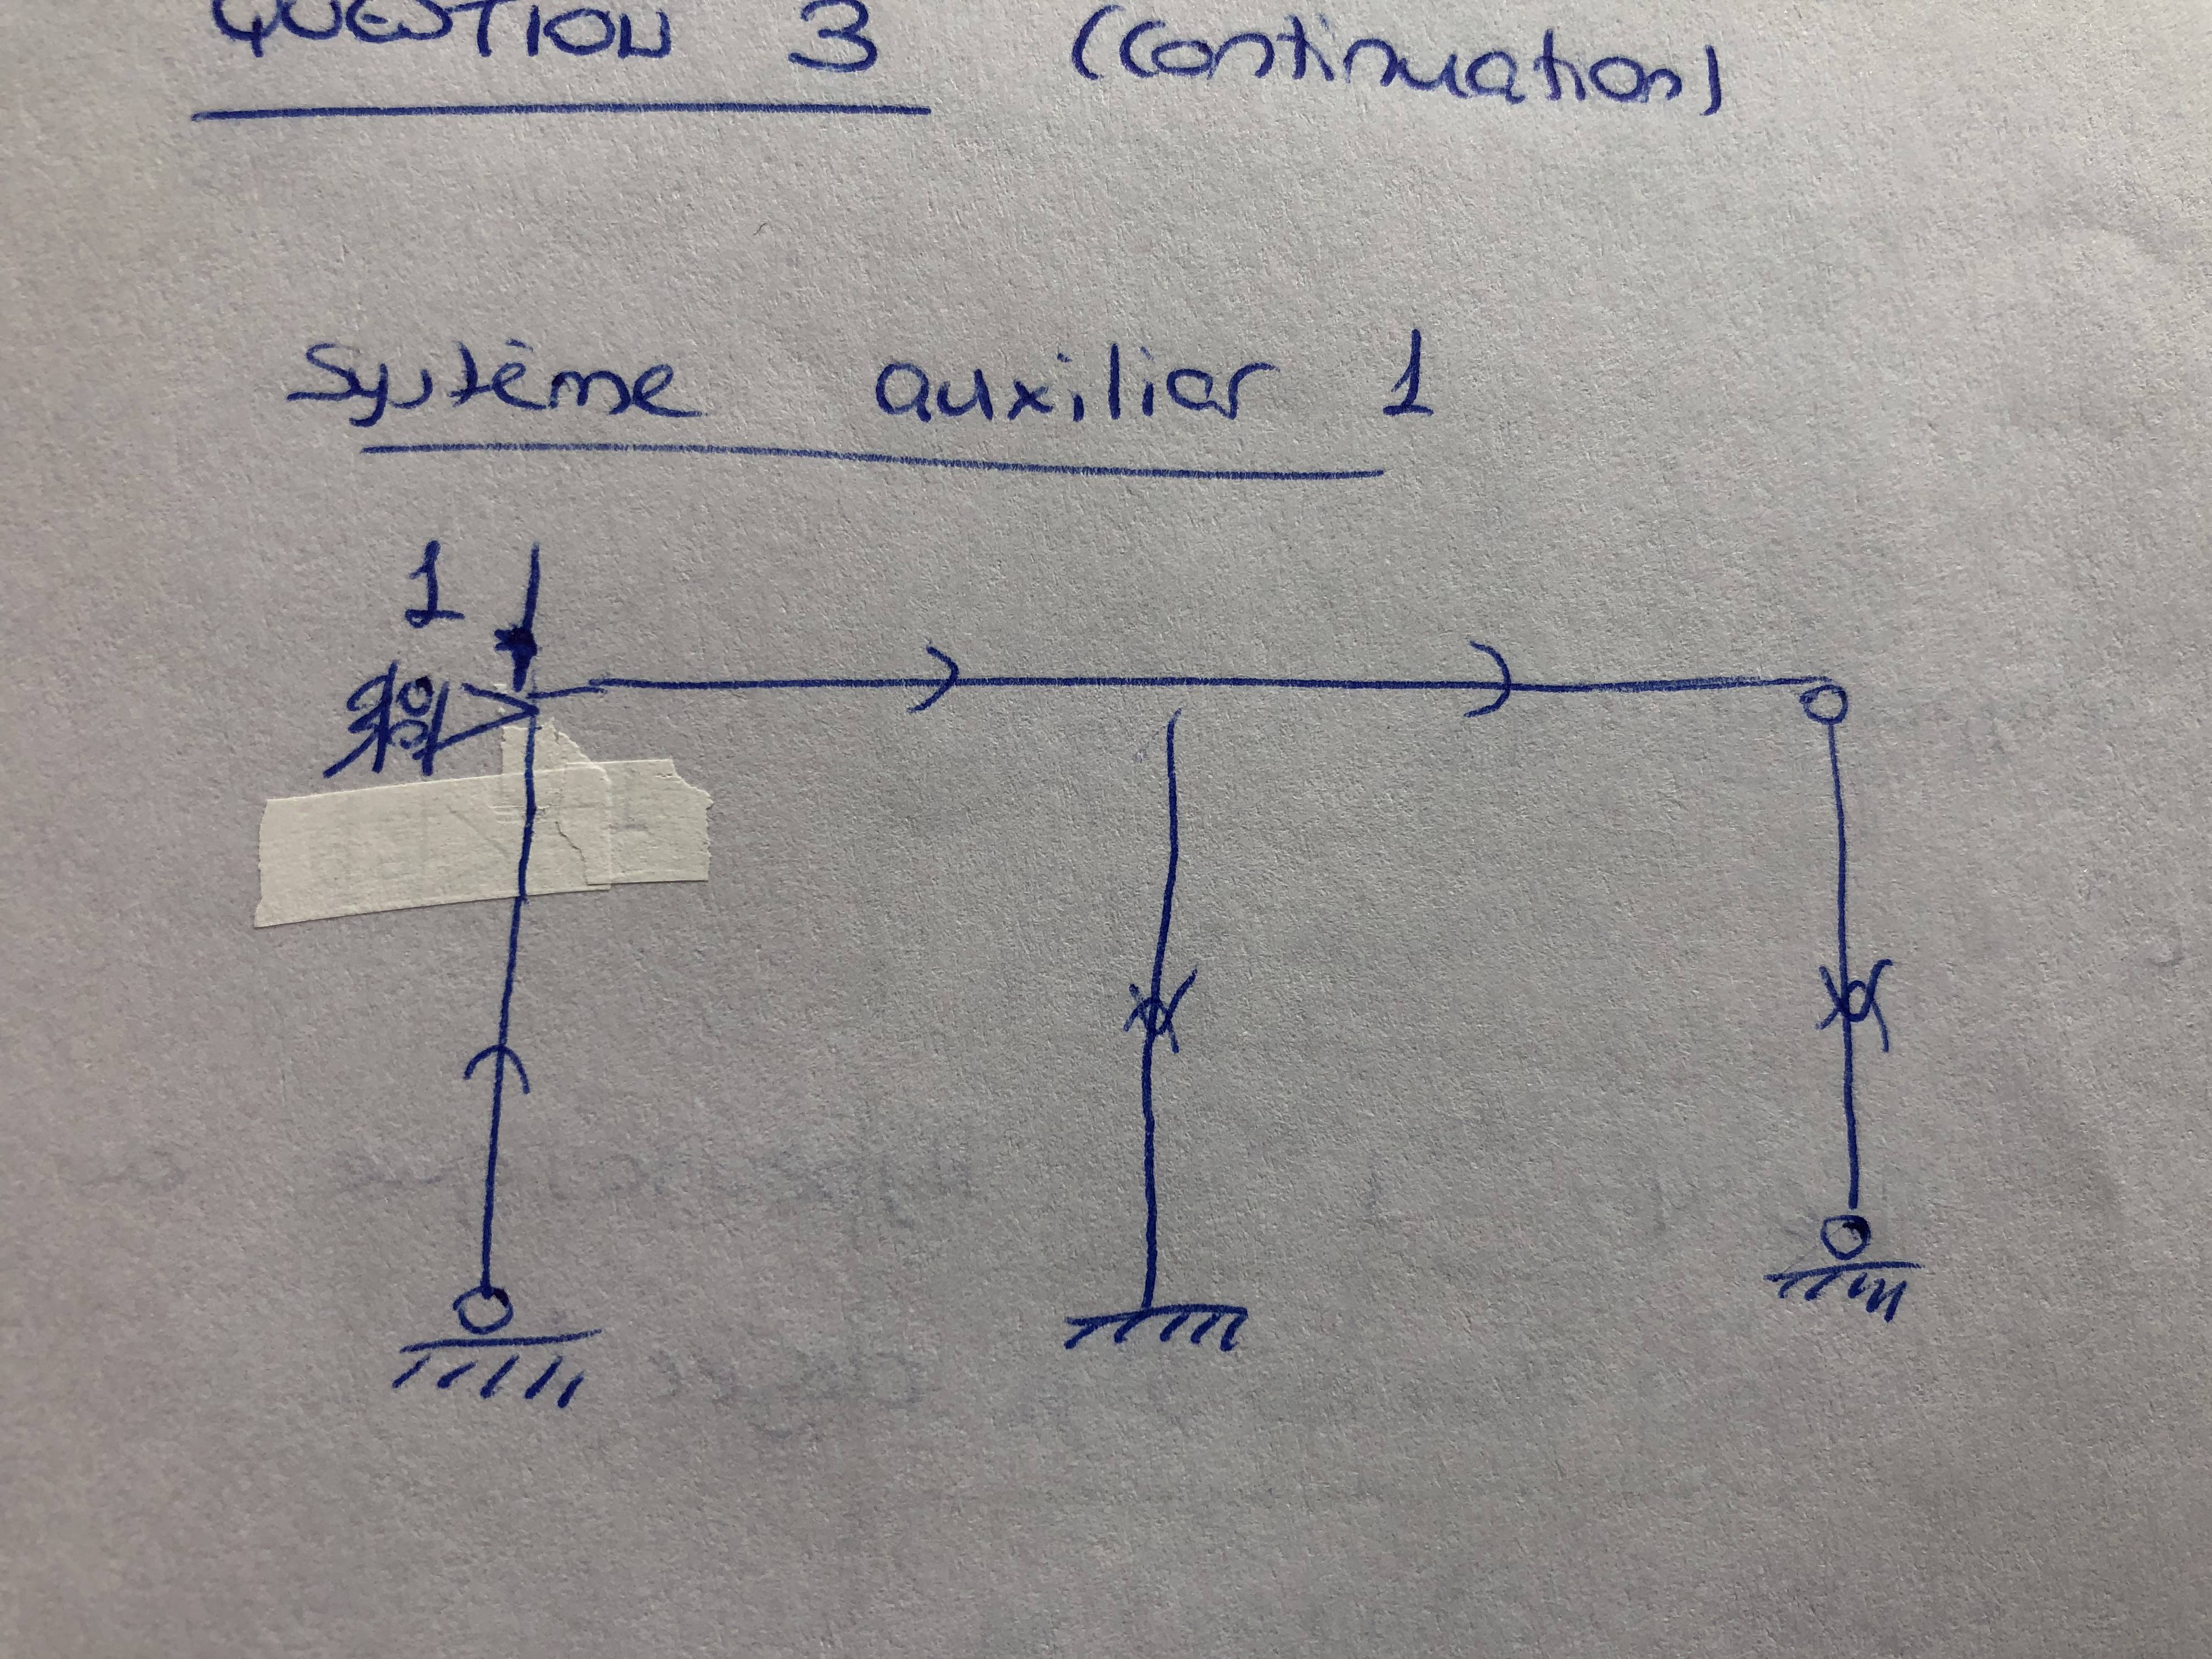 QUESTION 3 (Continuation)
Système auxiliar 1
1